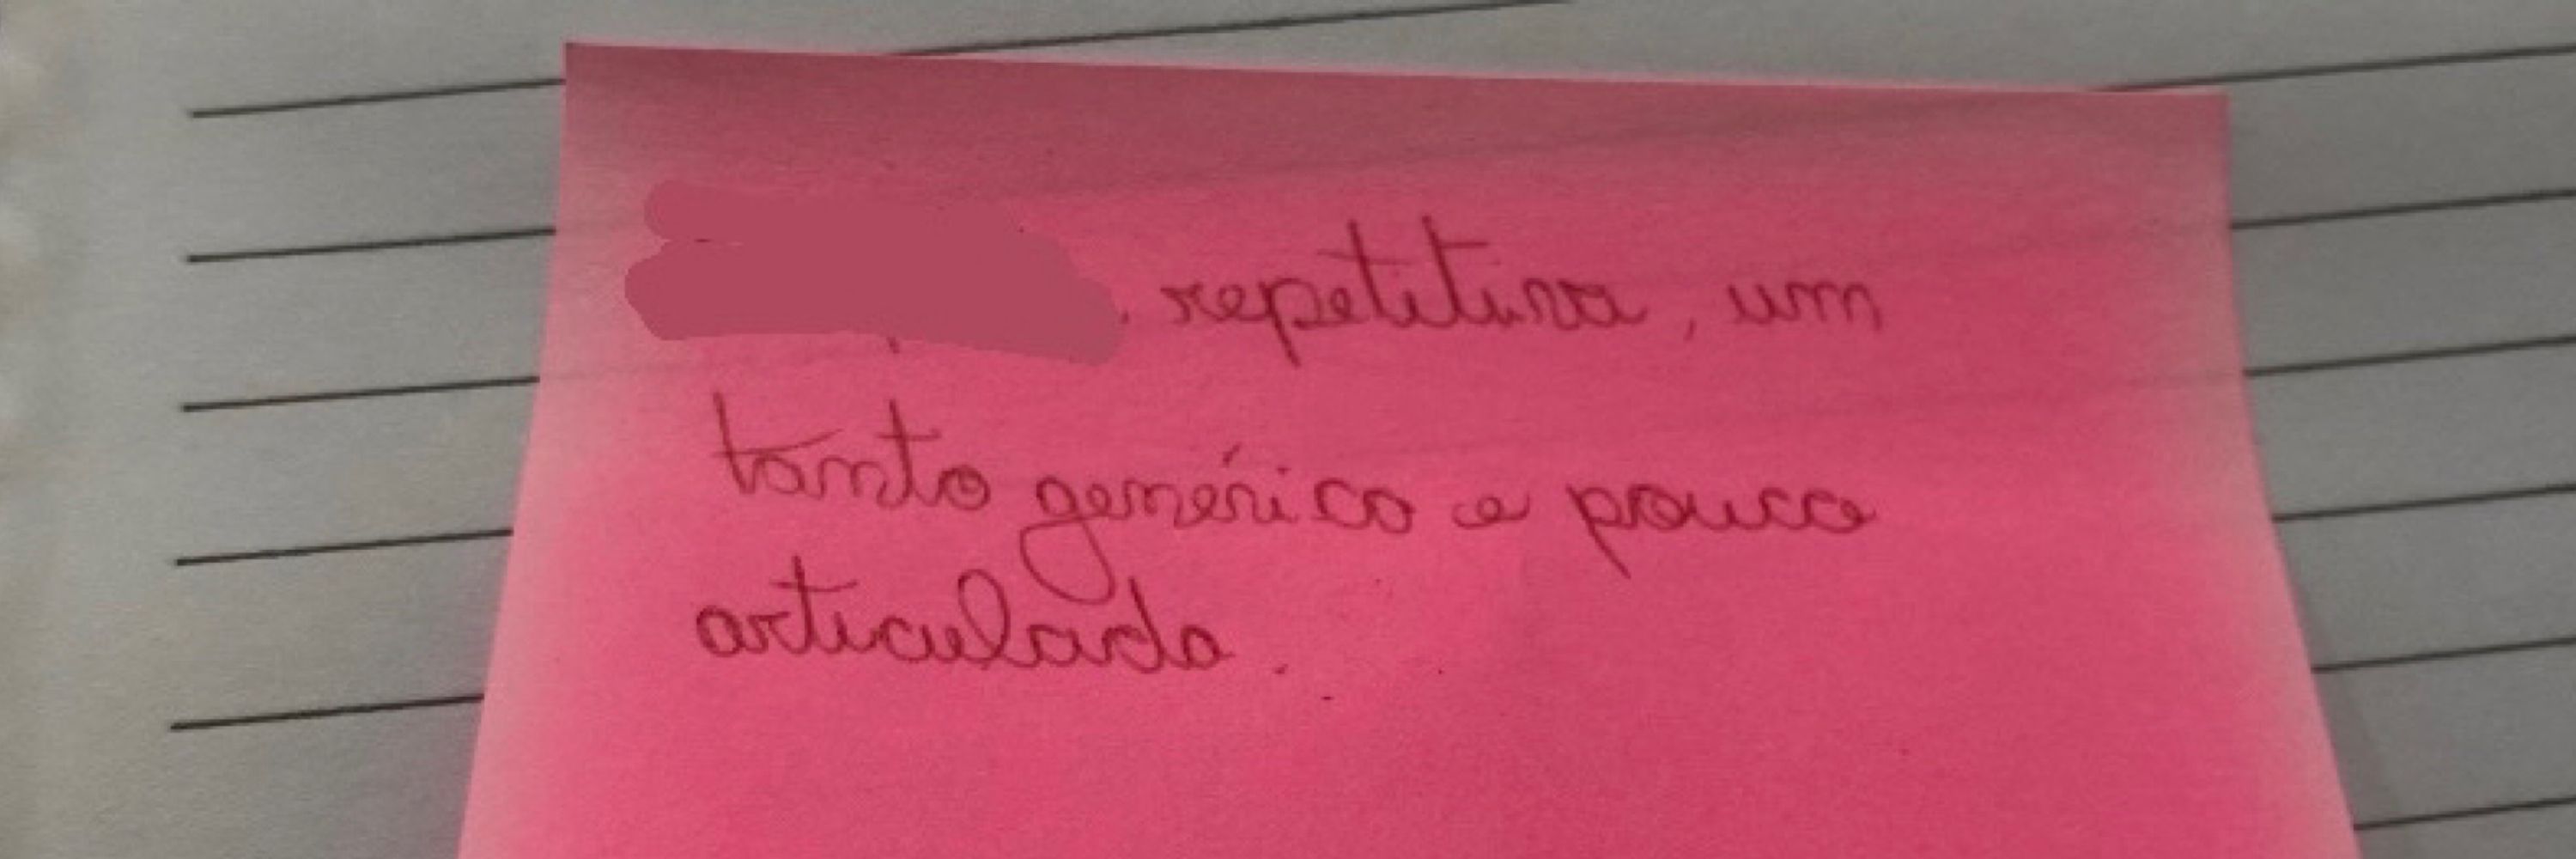 repetitiva, um
tanto genérico e pouco
articulado.